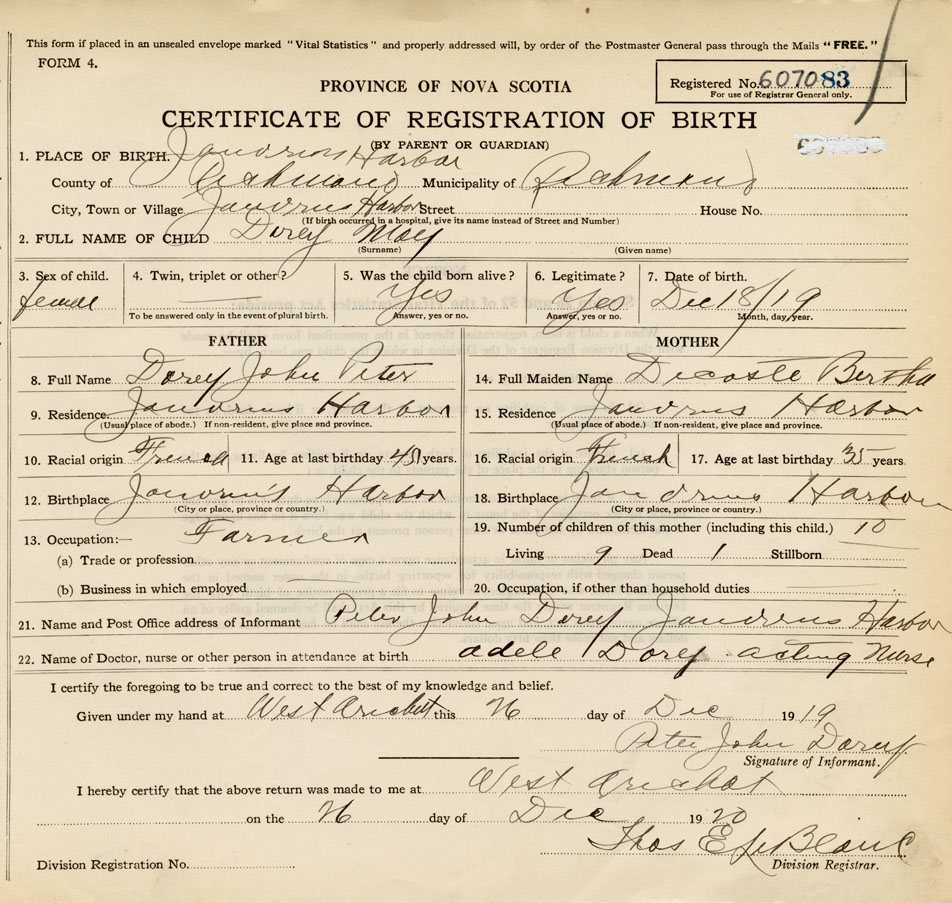 This form if placed in an unsealed envelope marked "Vital Statistics" and properly addressed will, by order of the Postmaster General pass through the Mails "FREE."
FORM 4.
PROVINCE OF NOVA SCOTIA
Registered No. 607083
For use of Registrar General only.
CERTIFICATE OF REGISTRATION OF BIRTH
(BY PARENT OR GUARDIAN)
1. PLACE OF BIRTH. Janvrins Harbor
County of Richmond Municipality of Richmond
City, Town or Village Janvrins Harbor Street House No.
(If birth occurred in a hospital, give its name instead of Street and Number)
2. FULL NAME OF CHILD Dorey May
(Surname) (Given name)
3. Sex of child. 4. Twin, triplet or other? 5. Was the child born alive? 6. Legitimate? 7. Date of birth.
female Yes Yes Dec 18/19
To be answered only in the event of plural birth. Answer, yes or no. Answer, yes or no. Month, day, year.
FATHER MOTHER
8. Full Name Dorey John Peter 14. Full Maiden Name Decoste Bertha
9. Residence. Janvrins Harbor 15. Residence Janvrins Harbor
(Usual place of abode.) If non-resident, give place and province. (Usual place of abode.) If non-resident, give place and province.
10. Racial origin French 11. Age at last birthday years. 16. Racial origin French 17. Age at last birthday 35 years.
12. Birthplace Janvrin's Harbor 18. Birthplace Janvrins Harbor
(City or place, province or country.) (City or place, province or country.)
13. Occupation:— Farmer 19. Number of children of this mother (including this child.) 10
(a) Trade or profession Living 9 Dead 1 Stillborn
(b) Business in which employed 20. Occupation, if other than household duties
21. Name and Post Office address of Informant Peter John Dorey Janvrins Harbor
22. Name of Doctor, nurse or other person in attendance at birth adele Dorey acting Nurse
I certify the foregoing to be true and correct to the best of my knowledge and belief.
Given under my hand at West Arichat this 26 day of Dec 19 19
Peter John Dorey
Signature of Informant.
I hereby certify that the above return was made to me at West Arichat
on the 26 day of Dec 19 20
Thos E LeBlanc
Division Registration No. Division Registrar.